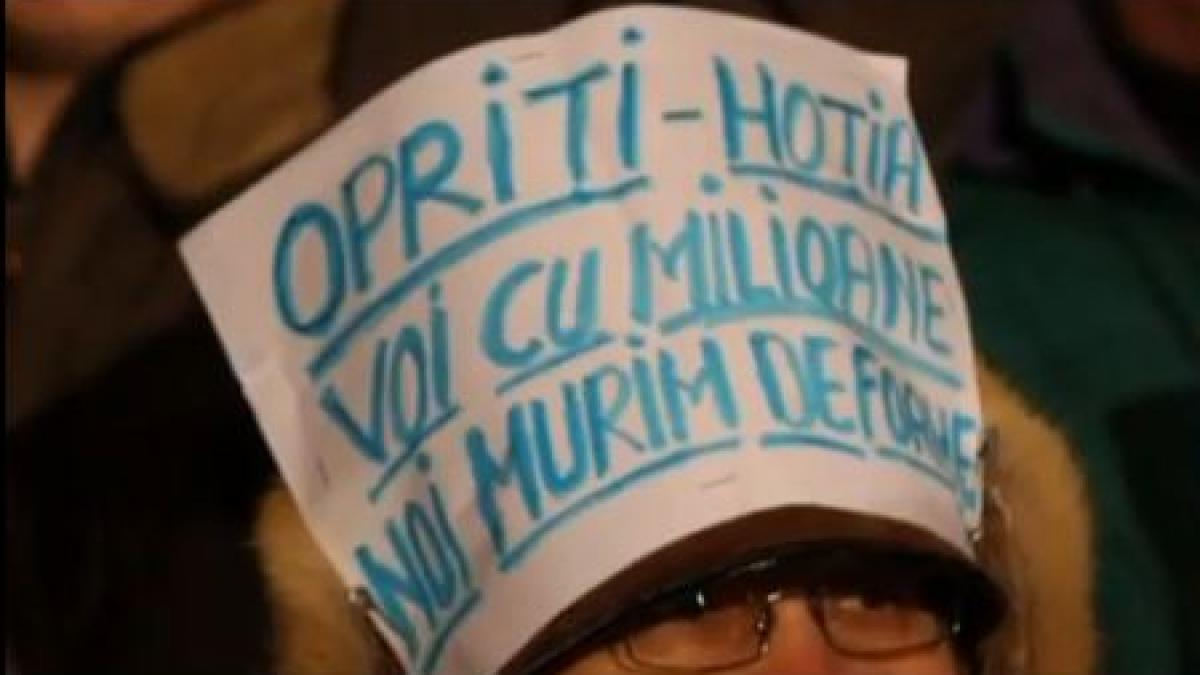 OPRITI-HOTIA
VOI CU MILIOANE
NOI MURIM DE FOAME